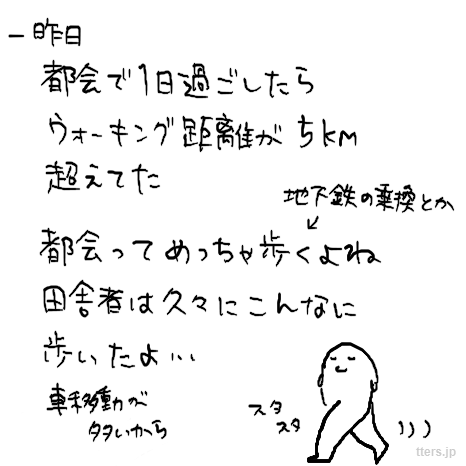 一昨日
都会で1日過ごしたら
ウォーキング距離が5km
超えてた
地下鉄の乗換とか
都会ってめっちゃ歩くよね
田舎者は久々にこんなに
歩いたよ…
車移動が
多いから
スタ
スタ
tters.jp